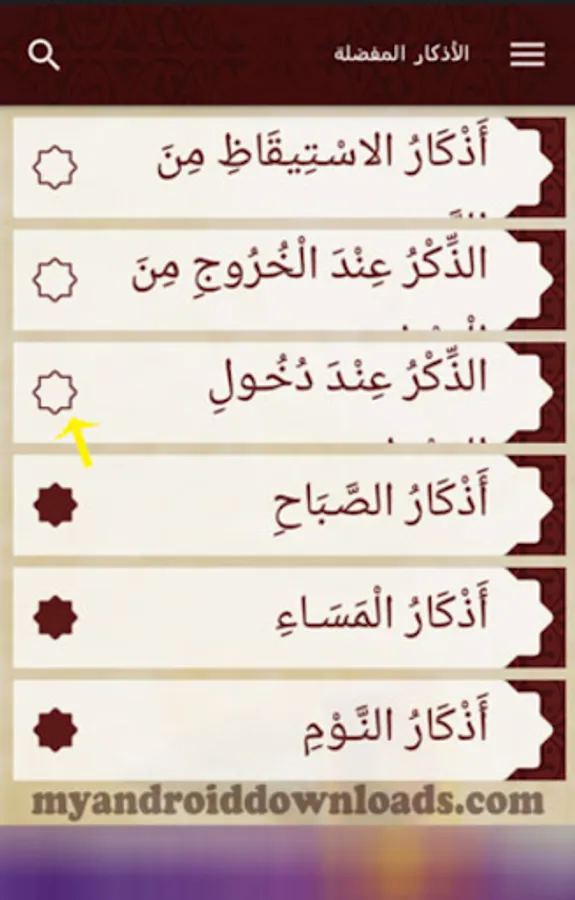 الأذكار المفضلة
أَذْكَارُ الاسْتِيقَاظِ مِنَ
الذِّكْرُ عِنْدَ الْخُرُوجِ مِنَ
الذِّكْرُ عِنْدَ دُخُولِ
أَذْكَارُ الصَّبَاحِ
أَذْكَارُ الْمَسَاءِ
أَذْكَارُ النَّوْمِ
myandroiddownloads.com